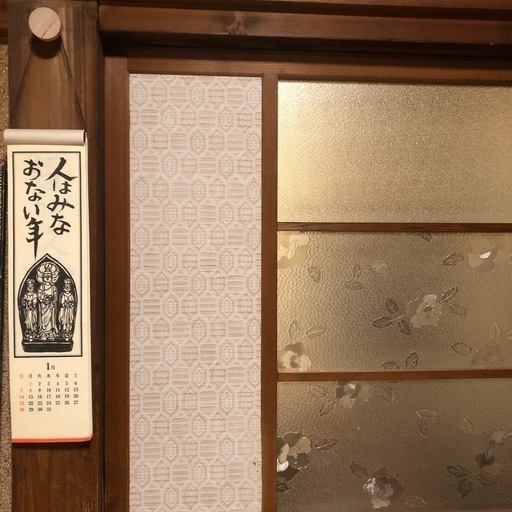 人はみな
おない年
1月
日 月 火 水 木 金 土
1 2 3 4 5 6
7 8 9 10 11 12 13
14 15 16 17 18 19 20
21 22 23 24 25 26 27
28 29 30 31